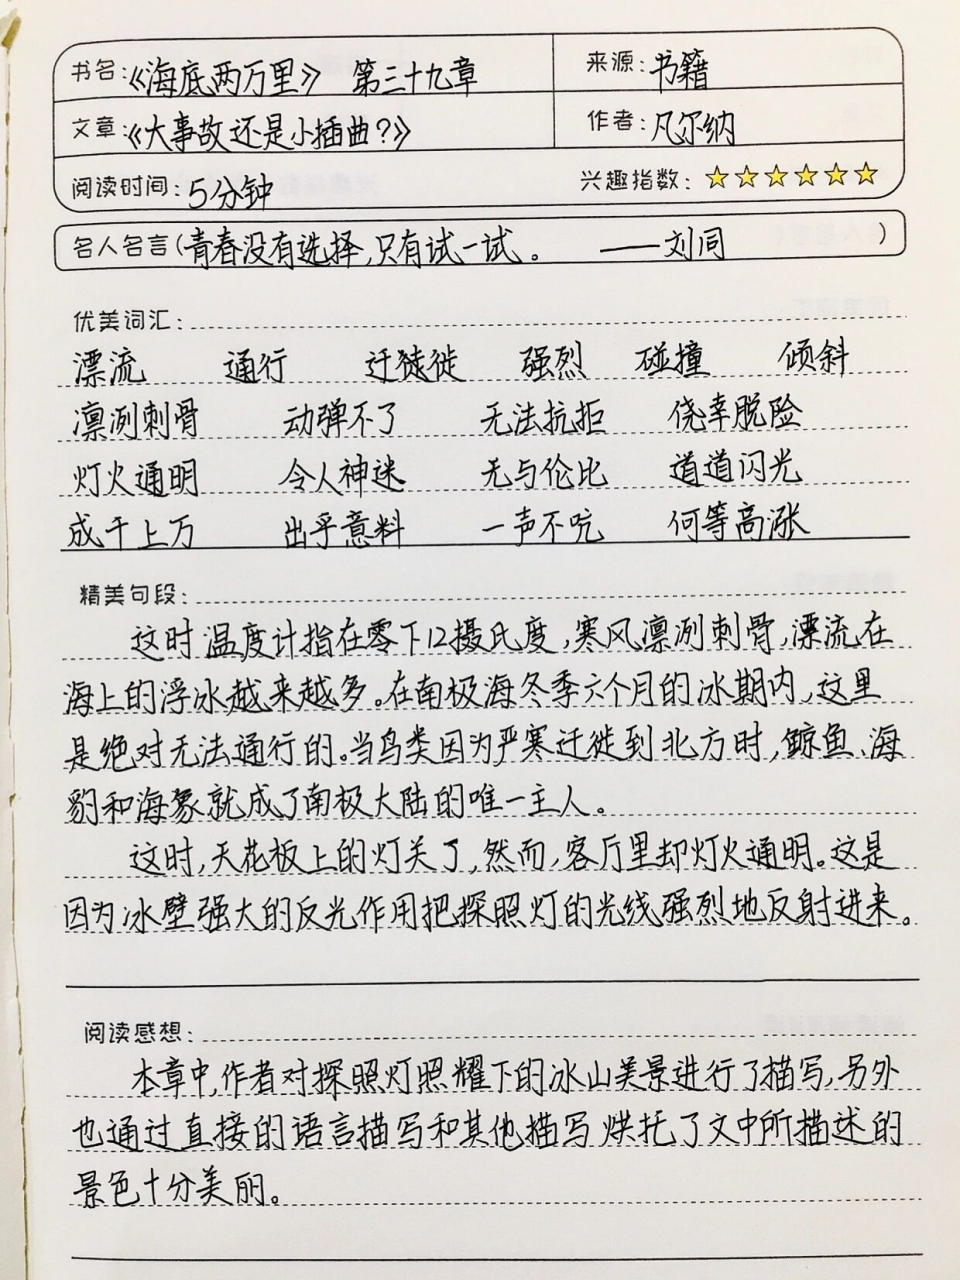 书名:《海底两万里》 第三十九章 来源:书籍
文章:《大事故还是小插曲?》 作者:凡尔纳
阅读时间:5分钟 兴趣指数:☆☆☆☆☆☆
名人名言(青春没有选择,只有试一试。 ——刘同)
优美词汇:
漂流 通行 迁徙徙 强烈 碰撞 倾斜
凛冽刺骨 动弹不了 无法抗拒 侥幸脱险
灯火通明 令人神迷 无与伦比 道道闪光
成千上万 出乎意料 一声不吭 何等高涨
精美句段:
这时温度计指在零下12摄氏度,寒风凛冽刺骨,漂流在
海上的浮冰越来越多。在南极海冬季六个月的冰期内,这里
是绝对无法通行的。当鸟类因为严寒迁徙到北方时,鲸鱼、海
豹和海象就成了南极大陆的唯一主人。
这时,天花板上的灯关了,然而,客厅里却灯火通明。这是
因为冰壁强大的反光作用把探照灯的光线强烈地反射进来。
阅读感想:
本章中,作者对探照灯照耀下的冰山美景进行了描写,另外
也通过直接的语言描写和其他描写烘托了文中所描述的
景色十分美丽。